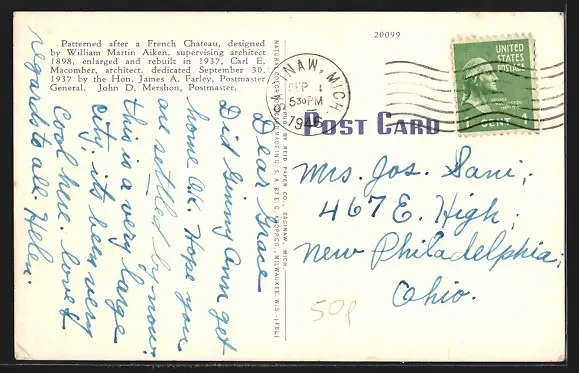 Patterned after a French Chateau, designed
by William Martin Aiken, supervising architect
1898, enlarged and rebuilt in 1937, Carl E.
Macomber, architect, dedicated September 30,
1937 by the Hon. James A. Farley, Postmaster
General. John D. Mershon, Postmaster.
20099
SAGINAW, MICH.
SEP 1
5 30 PM
1946
UNITED
STATES
POSTAGE
CENT 1
POST CARD
PUB. BY REID PAPER CO., SAGINAW, MICH.
NATURAL COLOR POST CARD MADE IN U. S. A. BY E. C. KROPP CO., MILWAUKEE, WIS.
Dear Grace
Did Ginny Ann get
home O.K. Hope you
are settled by now.
This is a very large
city, its been very
cool here. love &
regards to all. Helen.
Mrs. Jos. Sani,
467 E. High,
New Philadelphia,
Ohio.
50p